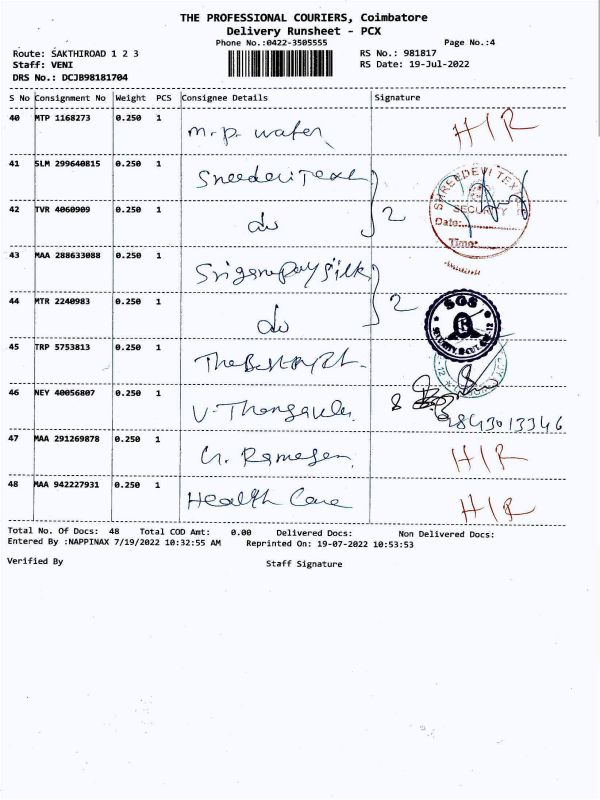 THE PROFESSIONAL COURIERS, Coimbatore
Delivery Runsheet - PCX
Phone No.:0422-3505555 Page No.:4
Route: SAKTHIROAD 1 2 3 RS No.: 981817
Staff: VENI RS Date: 19-Jul-2022
DRS No.: DCJB98181704
S No Consignment No Weight PCS Consignee Details Signature
40 MTP 1168273 0.250 1 m.p. water H/R
41 SLM 299640815 0.250 1
SHREEDEVI TEX
SECURITY
Date:
Time:
42 TVR 4060909 0.250 1 do 2
43 MAA 288633088 0.250 1
44 MTR 2240983 0.250 1 do 2
SGS
45 TRP 5753813 0.250 1
46 NEY 40056807 0.250 1
9843013346
47 MAA 291269878 0.250 1 H/R
48 MAA 942227931 0.250 1 Health Care H/R
Total No. Of Docs: 48 Total COD Amt: 0.00 Delivered Docs: Non Delivered Docs:
Entered By :NAPPINAX 7/19/2022 10:32:55 AM Reprinted On: 19-07-2022 10:53:53
Verified By Staff Signature